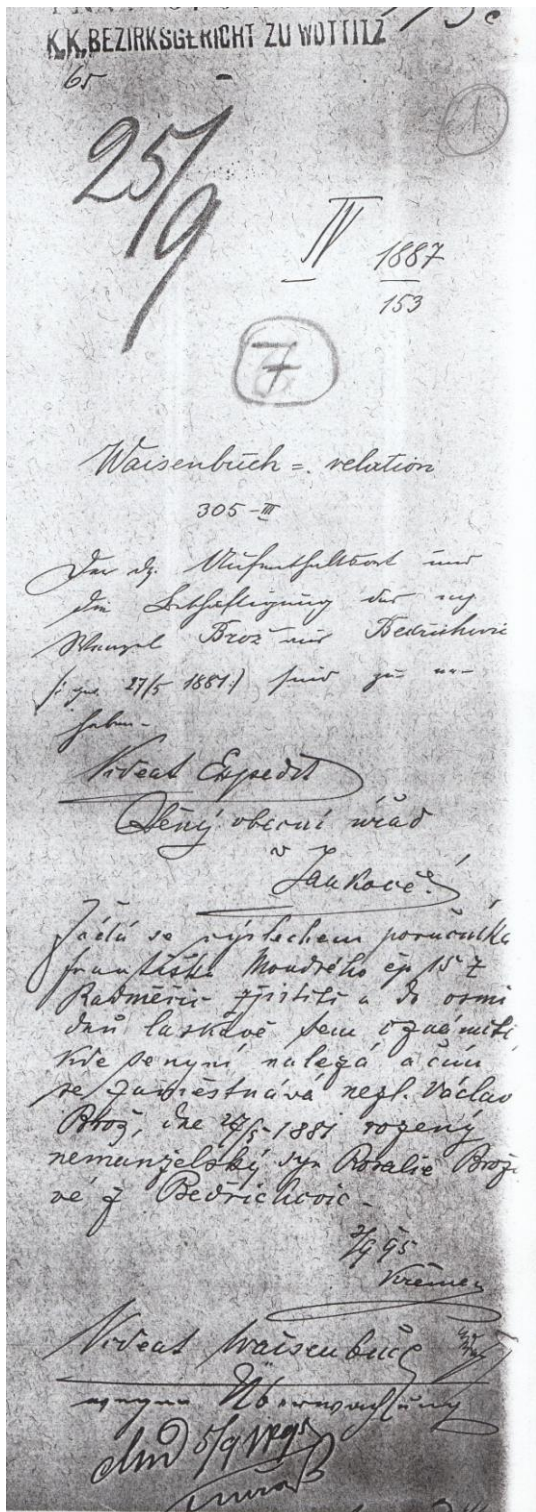 K.K. BEZIRKSGERICHT ZU WOTTITZ
65
1
25/9
IV 1887
153
7
Waisenbuch=relation
305-III
Der dz. Aufenthaltsort und
die Beschäftigung des mj
Wenzel Brož aus Bedřichovic
27/5 1881.) sind zu er-
heben.
Videat Expedit
Ctěný obecní úřad
v Jankově!
Žádá se výslechem poručníka
Františka Moudrého čp 15 z
Radměřic zjistiti a do osmi
dnů laskavě sem oznámiti
kde se nyní nalezá a čím
se zaměstnává nezl. Václav
Brož, dne 27/5 1881 rozený
nemanželský syn Rosalie Brožo
vé z Bedřichovic.
2/9 95
Videat Waisenbuch
wegen Überwachung
5/9 1895